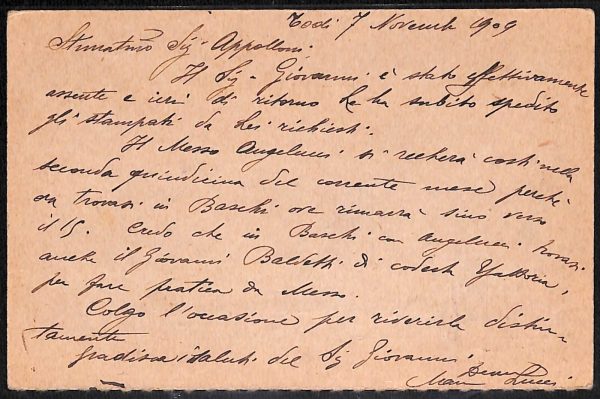 Todi 7 Novembre 1909
Stimatmo Sig. Appolloni.
Il Sig. Giovanni è stato effettivamente
assente e ieri di ritorno Le ha subito spedito
gli stampati da Lei richiesti.
Il Messo Angelucci si recherà costì nella
seconda quindicina del corrente mese perchè
ora trovasi in Baschi ove rimarrà sino verso
il 15. Credo che in Baschi con Angelucci trovasi
anche il Giovanni Baldetti di codesta Esattoria,
per fare pratica da Messo.
Colgo l'occasione per riverirla distin-
tamente
Gradisca i saluti del Sig Giovanni